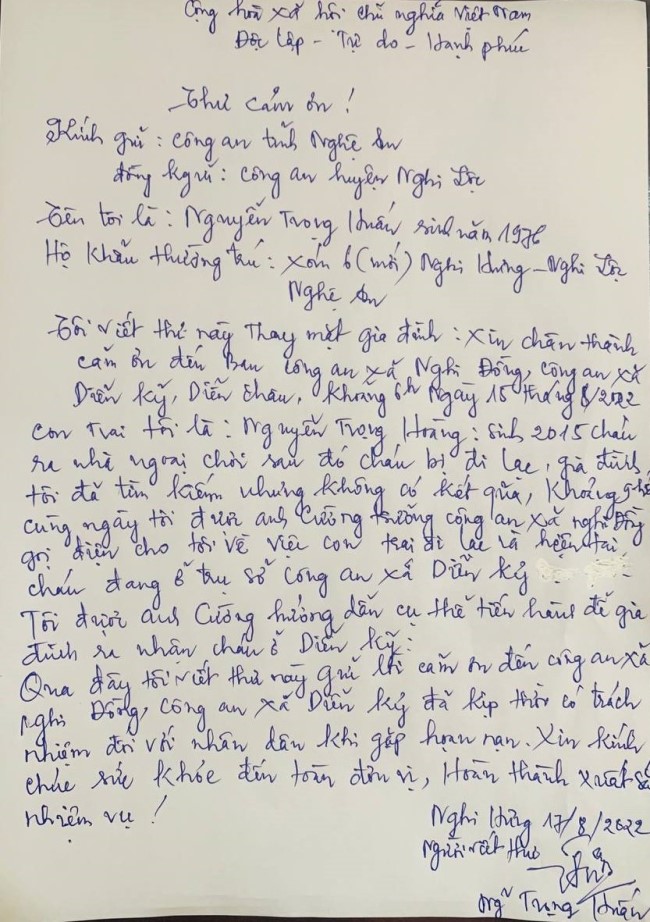 Cộng hoà xã hội chủ nghĩa Việt Nam
Độc lập - Tự do - Hạnh phúc
Thư cảm ơn !
Kính gửi : Công an tỉnh Nghệ An
đồng kgửi : Công an huyện Nghi Lộc
Tên tôi là : Nguyễn Trọng Huấn sinh năm 1976
Hộ khẩu thường trú : xóm 6 (mới) Nghi Hưng - Nghi Lộc
Nghệ An
Tôi viết thư này Thay mặt gia đình : xin chân thành
cảm ơn đến Ban công an xã Nghi Đồng, công an xã
Diễn kỷ, Diễn châu, khoảng 6h Ngày 15 tháng 8/2022
con Trai tôi là : Nguyễn Trọng Hoàng : sinh 2015 cháu
ra nhà ngoại chơi sau đó cháu bị đi lạc, gia đình
tôi đã tìm kiếm nhưng không có kết quả, khoảng
cùng ngày tôi được anh Cường trưởng công an xã nghi Đồng
gọi điện cho tôi về việc con trai đi lạc là hiện tại
cháu đang ở trụ sở công an xã Diễn kỷ
Tôi được anh Cường hướng dẫn cụ thể tiến hành để gia
đình ra nhận cháu ở Diễn kỷ :
Qua đây tôi viết thư này gửi lời cảm ơn đến công an xã
nghi Đồng, công an xã Diễn kỷ đã kịp thời có trách
nhiệm đối với nhân dân khi gặp hoạn nạn. Xin kính
chúc sức khỏe đến toàn đơn vị, Hoàn thành xuất sắ
nhiệm vụ !
Nghi Hưng 17/8/2022
Người viết thư
Ngũ Trọng Huấn